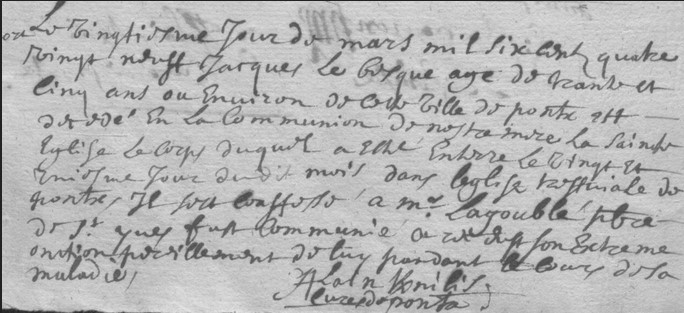 Le vingtiesme Jour de mars mil six cents quatre
vingt neuff Jacques Le besque age de trante et
Cinq ans ou Environ de cete ville de pontx est
decedé En La Communion de nostre mere La Sainte
Eglise Le Corps duquel a esté Enterre Le vingt et
Eniesme Jour dudit mois dans leglise trefviale de
pontrx Il sest Confessé a mr Lagoublé pbre
de St yues fust Communié a receust son Extreme
onction pareillement de luy pandant le Cours de sa
maladie,
Alain
Curé de pontx